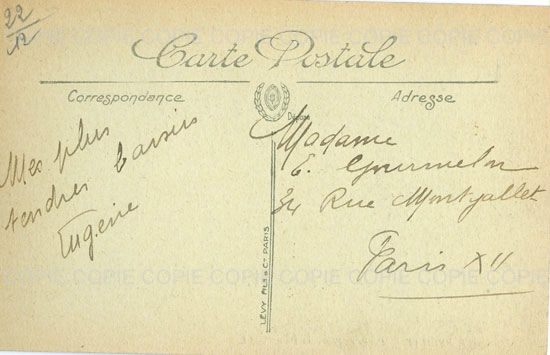 22
12
Carte Postale
Correspondance
Adresse
Mes plus
tendres baisers
Eugénie
Madame
E. Gourmelon
34 Rue Montgallet
Paris XII
LÉVY FILS & Cie PARIS
COPIE COPIE COPIE COPIE COPIE COPIE
COPIE COPIE COPIE COPIE COPIE COPIE